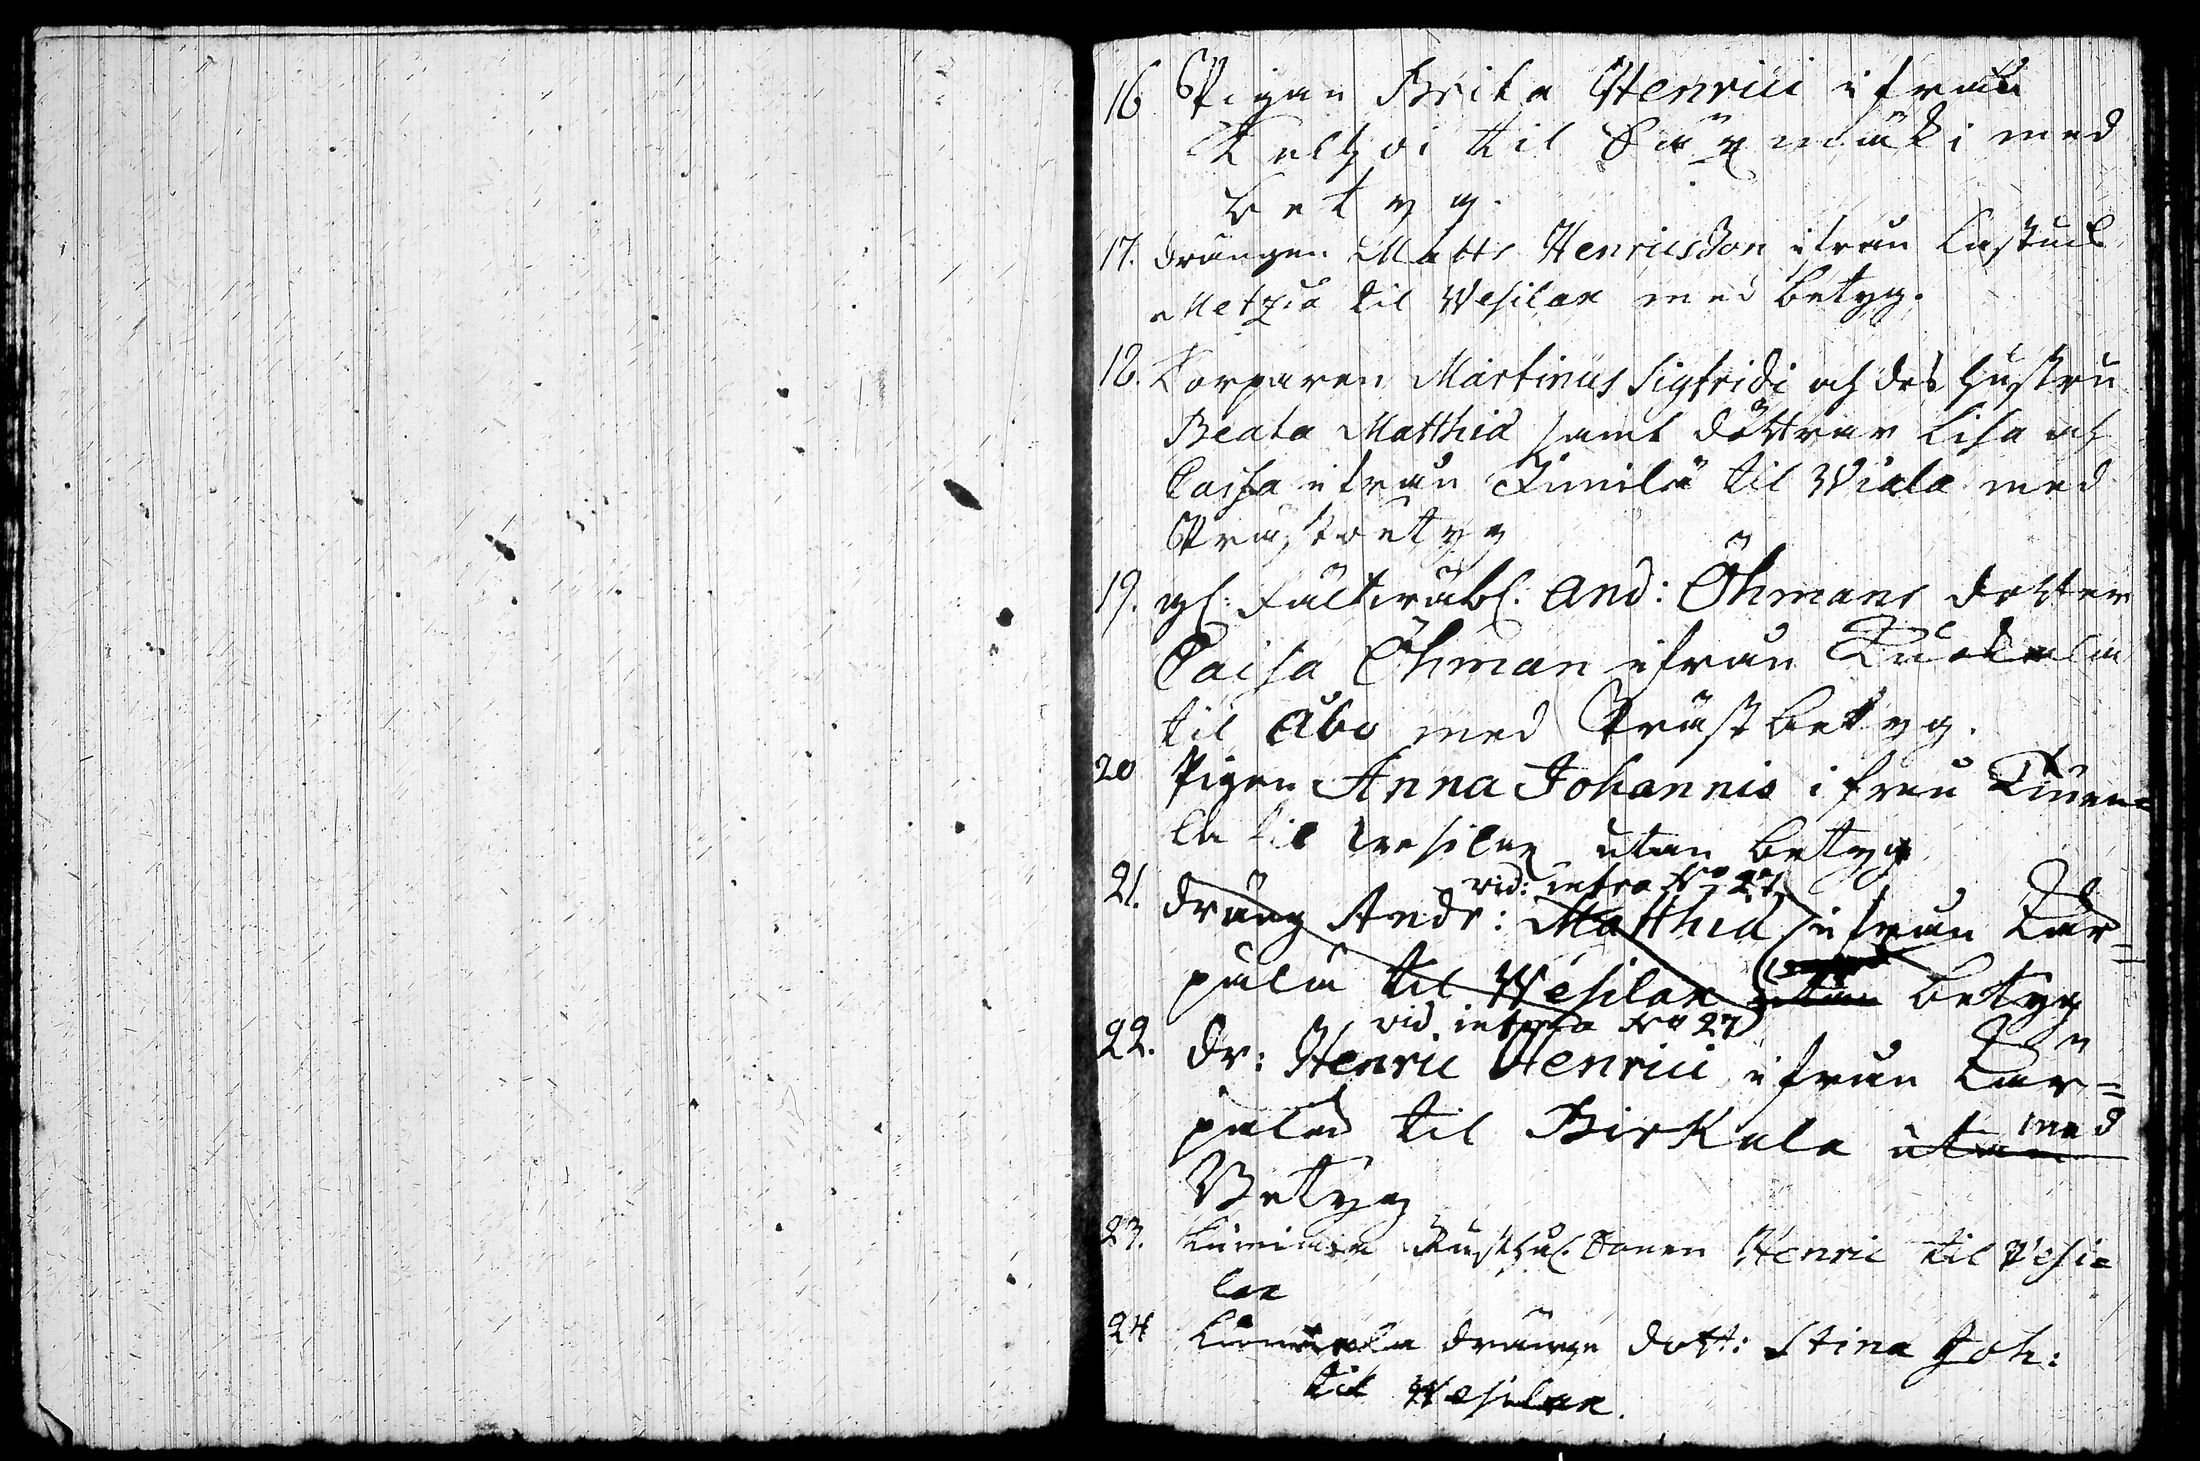 16 Pigan Brita Henrici ifrån
til Säxmäki med
betyg.
17. Drängen Matts Henricsson ifrån
til Wesilax med betyg.
18. Torparen Martinus Sigfridi och des hustru
Beata Matthiæ samt döttrar Lisa och
Caisa ifrån til Wiala med
Prästbetyg
19. And: Öhmans dotter
Caisa Öhman ifrån
til Åbo med Prästbetyg.
20 Pigan Anna Johannis ifrån
la til Wesilax utan betyg
vid: infra No 27
21. Dräng Andr: Matthiæ ifrån Kär=
pälä til Wesilax utan betyg
vid. infra No 27
22. Dr: Henric Henrici ifrån Kär=
pälä til Birkala utan med
Betyg
23. Sonen Henric til Vesi=
lax
24 drängs dott: Stina Joh:
til Wesilax.